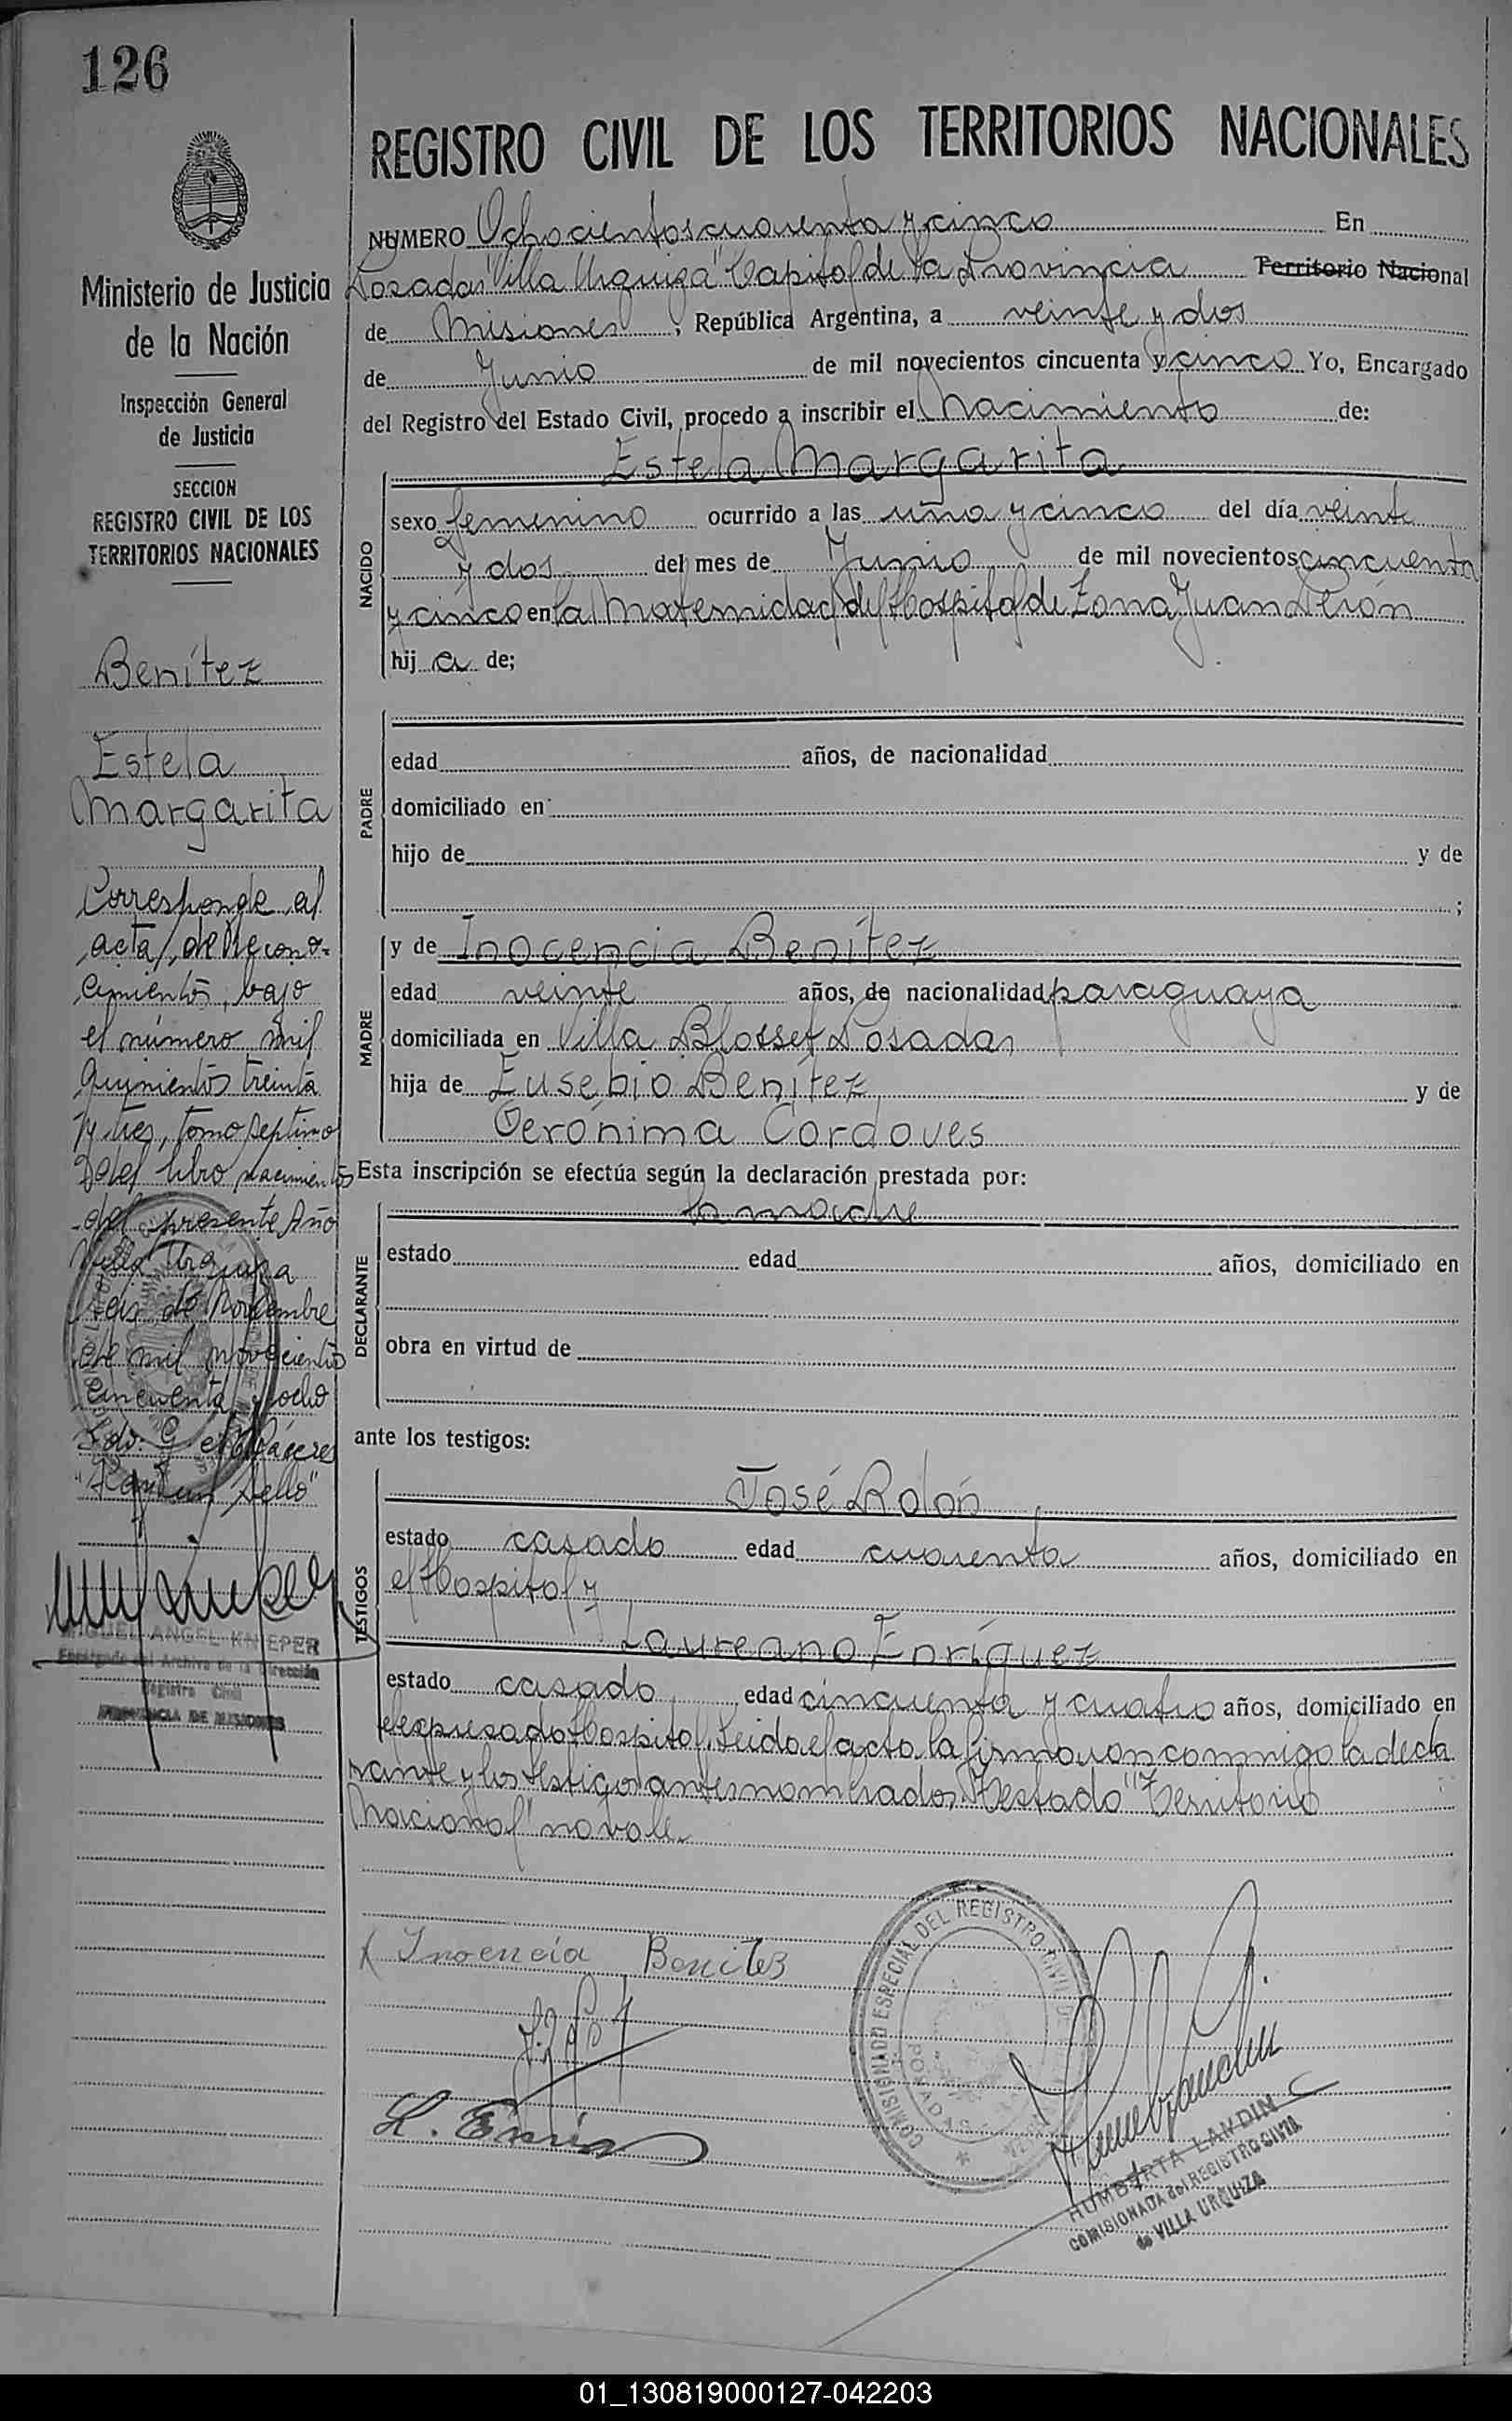 126
REGISTRO CIVIL DE LOS TERRITORIOS NACIONALES
Ministerio de Justicia
de la Nación
Inspección General
de Justicia
SECCION
REGISTRO CIVIL DE LOS
TERRITORIOS NACIONALES
Benítez
Estela
Margarita
Corresponde al
acta, de Recono-
cimiento, bajo
el número mil
quinientos treinta
y tres, tomo septimo
del libro nacimientos
del presente Año
Villa Urquiza
seis de Noviembre
de mil novecientos
cincuenta y ocho
"Hay un Sello"
MIGUEL ANGEL KNIEPER
Encargado del Archivo de la Dirección
Registro Civil
PROVINCIA DE MISIONES
NUMERO Ochocientos cuarenta y cinco En
Posadas "Villa Urquiza" Capital de la Provincia Territorio Nacional
de Misiones, República Argentina, a veinte y dos
de Junio de mil novecientos cincuenta y cinco Yo, Encargado
del Registro del Estado Civil, procedo a inscribir el Nacimiento de:
NACIDO
Estela Margarita
sexo femenino ocurrido a las una y cinco del día veinte
y dos del mes de Junio de mil novecientos cincuenta
y cinco en la Maternidad del Hospital de Zona Juan Perón
hij a de;
PADRE
edad años, de nacionalidad
domiciliado en
hijo de y de
;
MADRE
y de Inocencia Benítez
edad veinte años, de nacionalidad paraguaya
domiciliada en Villa Blosset Posadas
hija de Eusebio Benítez y de
Gerónima Cordoves
Esta inscripción se efectúa según la declaración prestada por:
DECLARANTE
la madre
estado edad años, domiciliado en
obra en virtud de
ante los testigos:
TESTIGOS
José Rolón
estado casado edad cuarenta años, domiciliado en
el Hospital y
Laureano Enríquez
estado casado edad cincuenta y cuatro años, domiciliado en
el expresado Hospital. Leida el acta la firmaron conmigo la decla
rante y los testigos antes nombrados Testado "Territorio
Nacional" no vale.
Inoencia Benitez
L. Enri
COMISIONADO ESPECIAL DEL REGISTRO CIVIL
POSADAS
HUMBERTA LANDIN
COMISIONADA del REGISTRO CIVIL
de VILLA URQUIZA
01_130819000127-042203